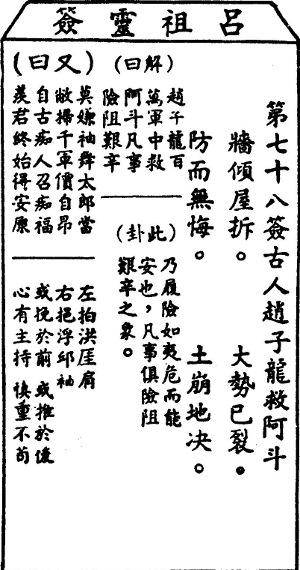 呂祖靈簽
第七十八簽古人趙子龍救阿斗
牆傾屋拆。 大勢已裂。
防而無悔。 土崩地決。
(曰解)
趙子龍百
萬軍中救
阿斗凡事
險阻艱辛
(卦此)
乃履險如夷危而能
安也,凡事俱險阻
艱辛之象。
(曰又)
莫嫌袖舞太郎當
敝掃千軍價自昂
自古痴人召痴福
羨君終始得安康
左拍洪崖肩
右挹浮邱袖
或挽於前 或推於後
心有主持 慎重不苟